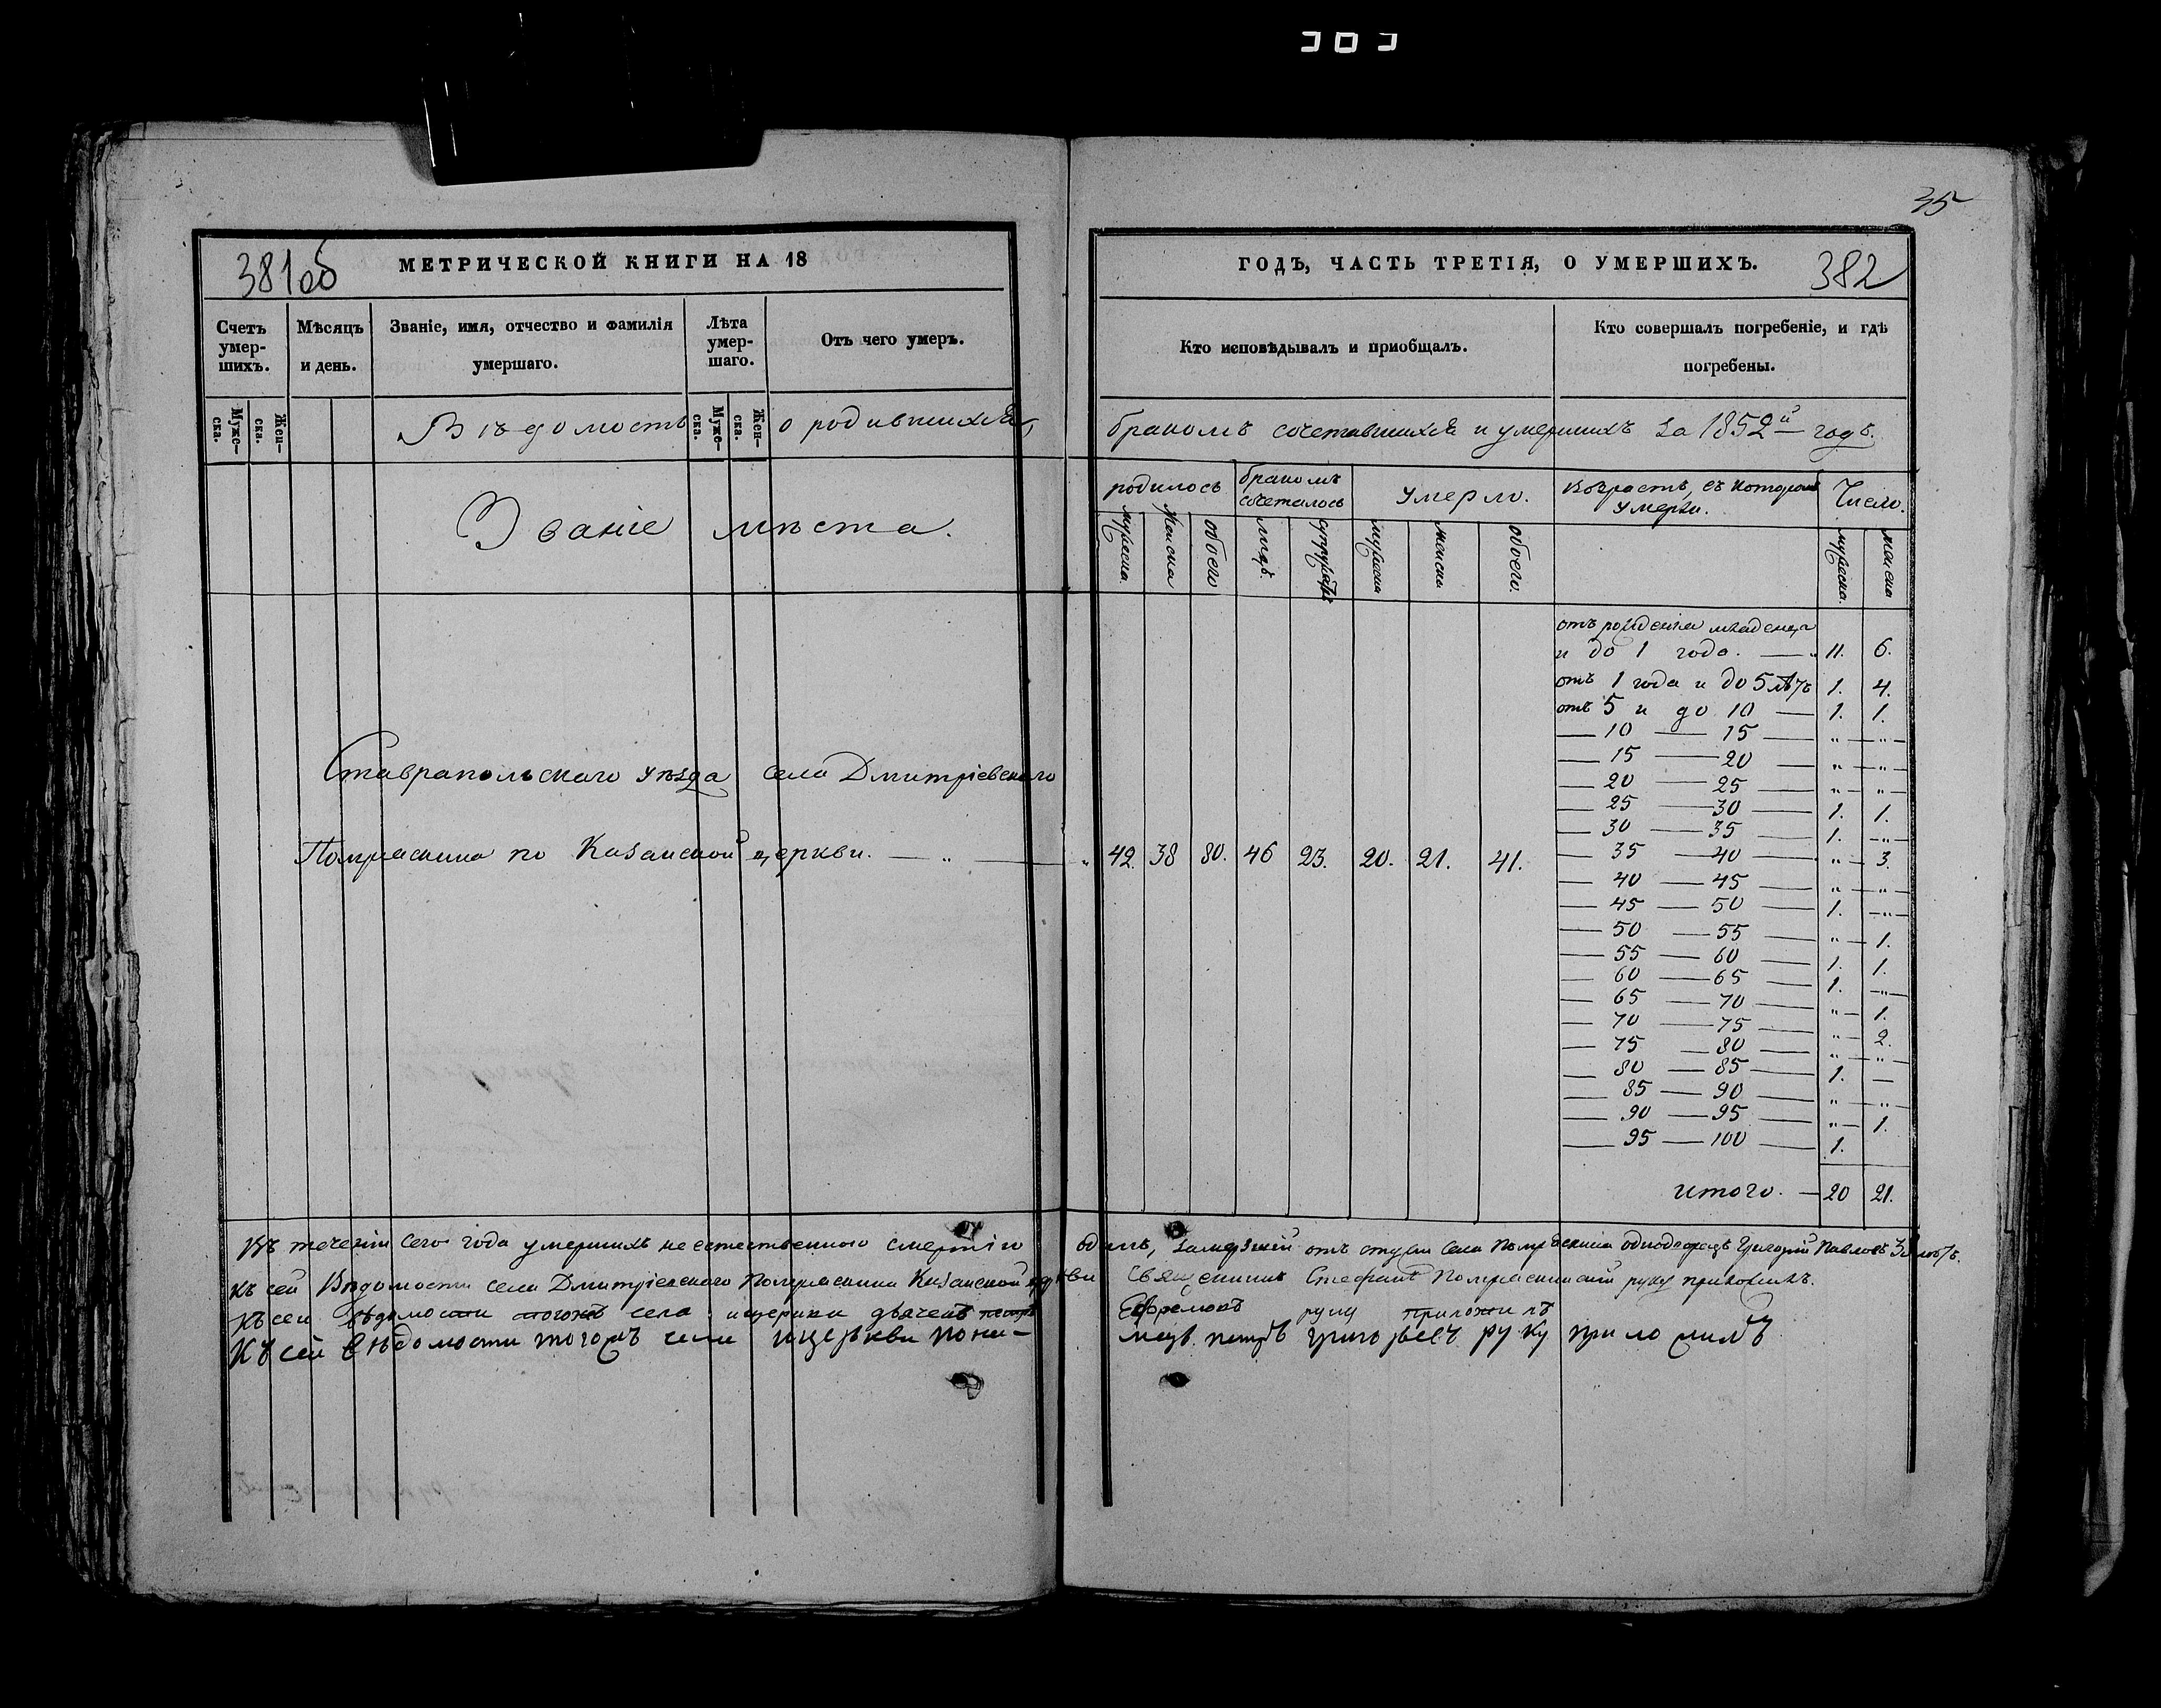 35
381об
МЕТРИЧЕСКОЙ КНИГИ НА 18
Счетъ умер-шихъ.
Мѣсяцъ и день.
Званіе, имя, отчество и фамилія умершаго.
Лѣта умер-шаго.
Отъ чего умеръ.
Муже-ска.
Жен-ска.
Муже-ска.
Жен-ска.
ГОДЪ, ЧАСТЬ ТРЕТІЯ, О УМЕРШИХЪ.
382
Кто исповѣдывалъ и пріобщалъ.
Кто совершалъ погребеніе, и гдѣ погребены.
Вѣдомость о родившихся,
бракомъ сочетавшихся и умершихъ за 1852й годъ.
Званіе мѣста.
родилось
бракомъ сочеталось
умерло.
Возрастъ, въ которомъ умерли.
Число.
мужеска.
женска
обоего
лицъ.
супружествъ
мужеска
женска
обоего.
мужеска.
женска
Ставрапольскаго уѣзда села Дмитріевскаго
Помряскина по Казанской церкви. — „ — „ 42. 38 80. 46 23. 20. 21. 41.
отъ рожденія младенца
и до 1 года. — 11. 6.
отъ 1 года и до 5 лѣтъ 1. 4.
отъ 5 и до 10 — 1. 1.
— 10 — 15 — „ — „ —
— 15 — 20 — „ — „ —
— 20 — 25 — „ — „ —
— 25 — 30 — 1. 1.
— 30 — 35 — 1. — „ —
— 35 — 40 — „ — 3.
— 40 — 45 — „ — „ —
— 45 — 50 — 1. — „ —
— 50 — 55 — „ — 1.
— 55 — 60 — 1. 1.
— 60 — 65 — 1. — „ —
— 65 — 70 — „ — 1.
— 70 — 75 — „ — 2.
— 75 — 80 — „ — „ —
— 80 — 85 — 1. —
— 85 — 90 — „ — „ —
— 90 — 95 — „ — 1.
— 95 — 100 — 1.
итого. — 20 21.
Въ теченіи сего года умершихъ неестественною смертію одинъ, замерзшій отъ стужи села Помряскина однодворецъ Григорій Павловъ лѣтъ.
Къ сей Вѣдомости села Дмитріевскаго Помряскина Казанской церкви Священникъ Стефанъ Помряскинскій руку приложилъ.
Къ сей Вѣдомости тогожъ села и церкви дьячекъ Ефремовъ руку приложилъ
Къ сей вѣдомости тогожъ села и церкви поно-
марь петръ григорьевъ руку приложилъ